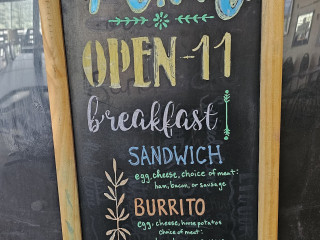 OPEN-11
breakfast
SANDWICH
egg, cheese, choice of meat:
ham, bacon, or sausage
BURRITO
egg, cheese, home potatos
choice of meat: